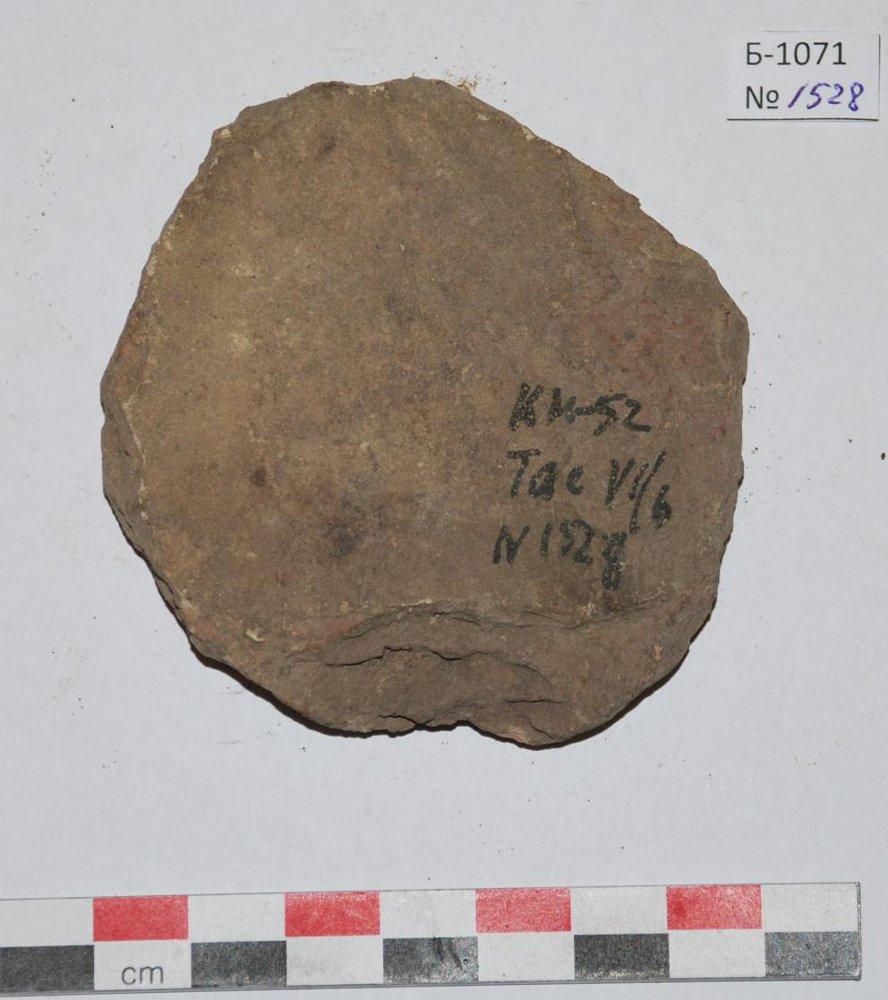 Б-1071
№ 1528
КМ-52
Тас VI/6
N 1528
cm